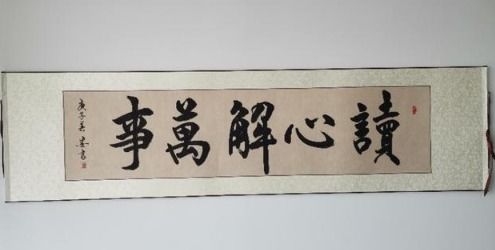 讀心解萬事
庚子年 書